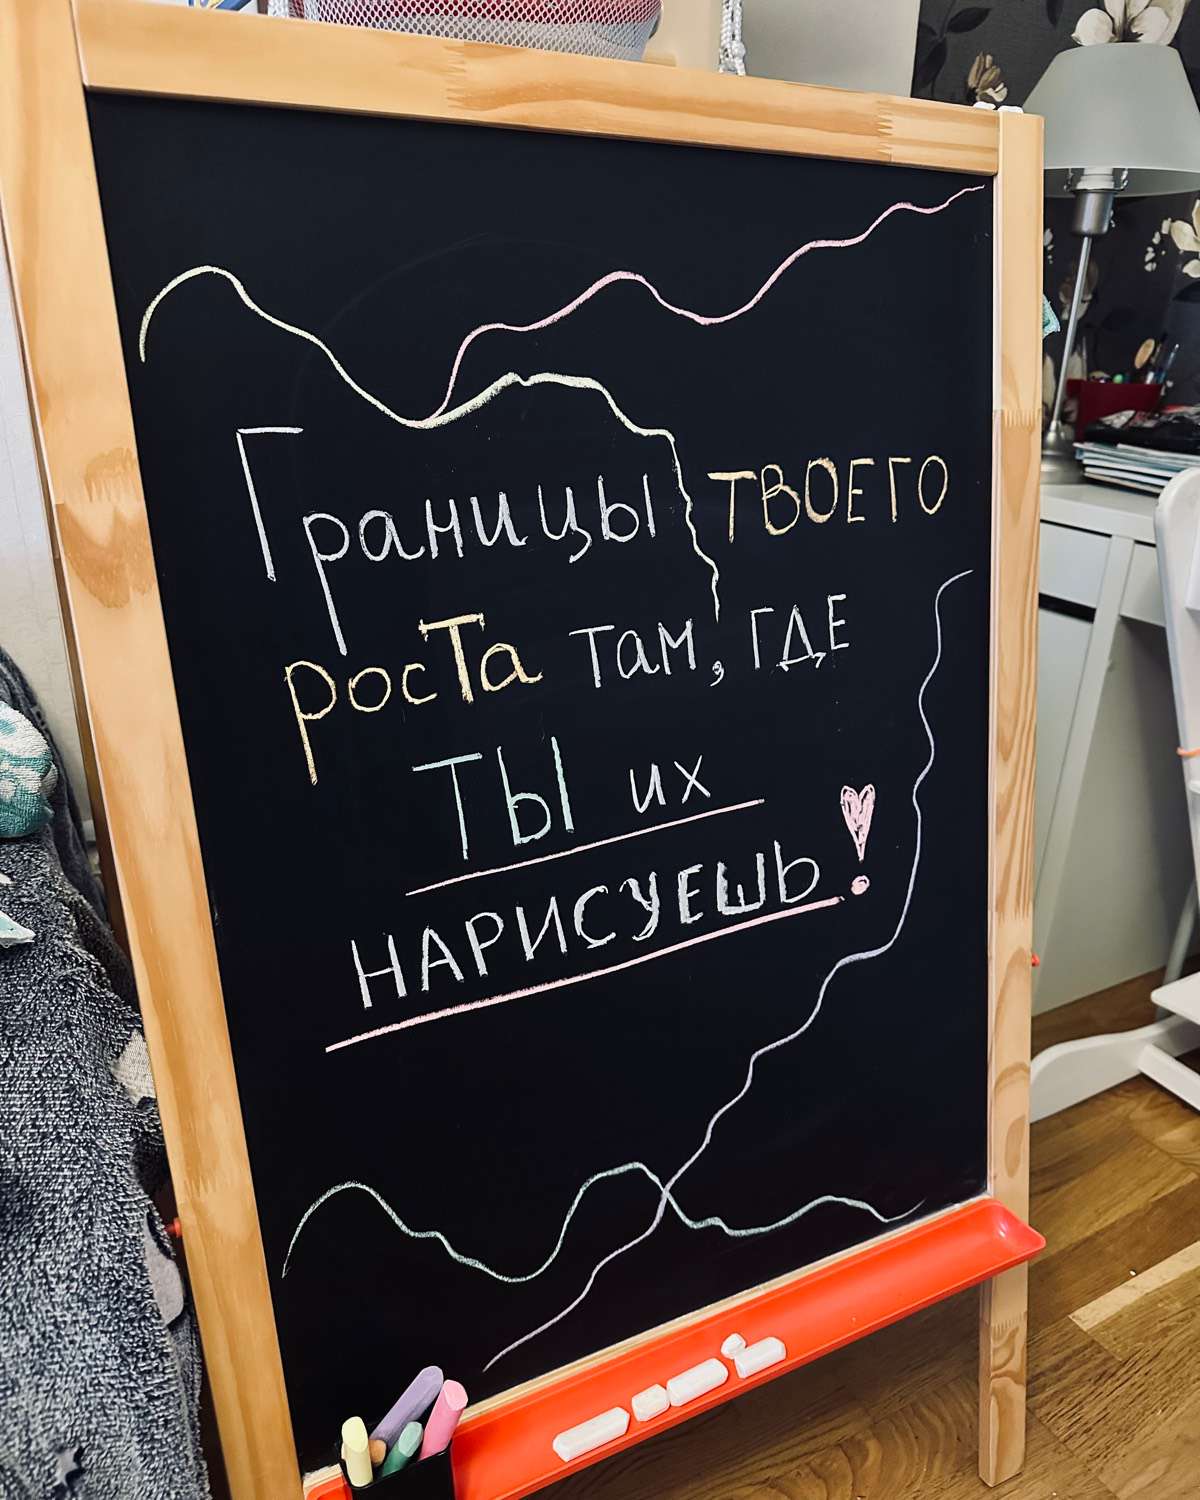 Границы ТВОЕГО
роста там, ГДЕ
ТЫ их
НАРИСУЕШЬ!